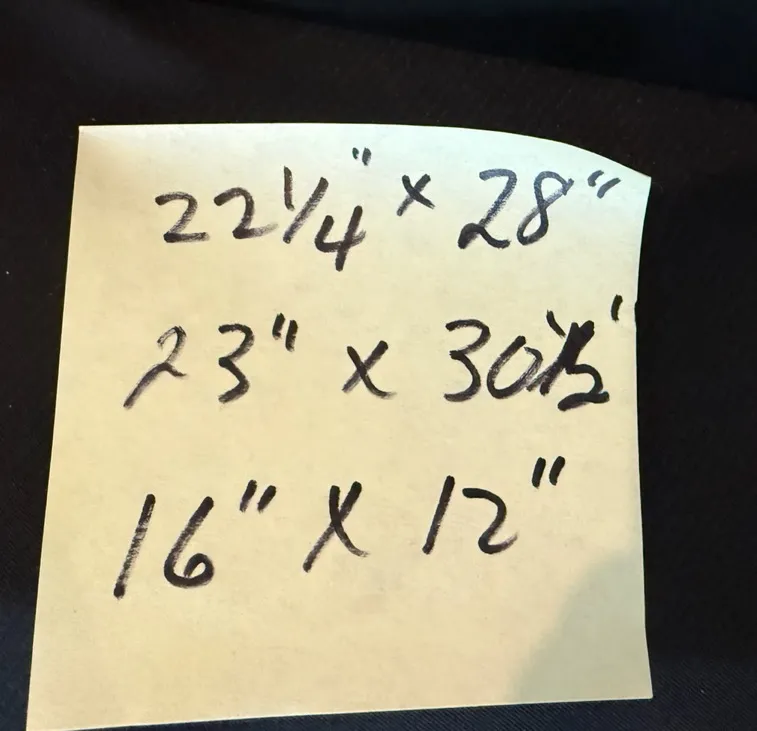 22 1/4" x 28"
23" x 30 1/2"
16" x 12"